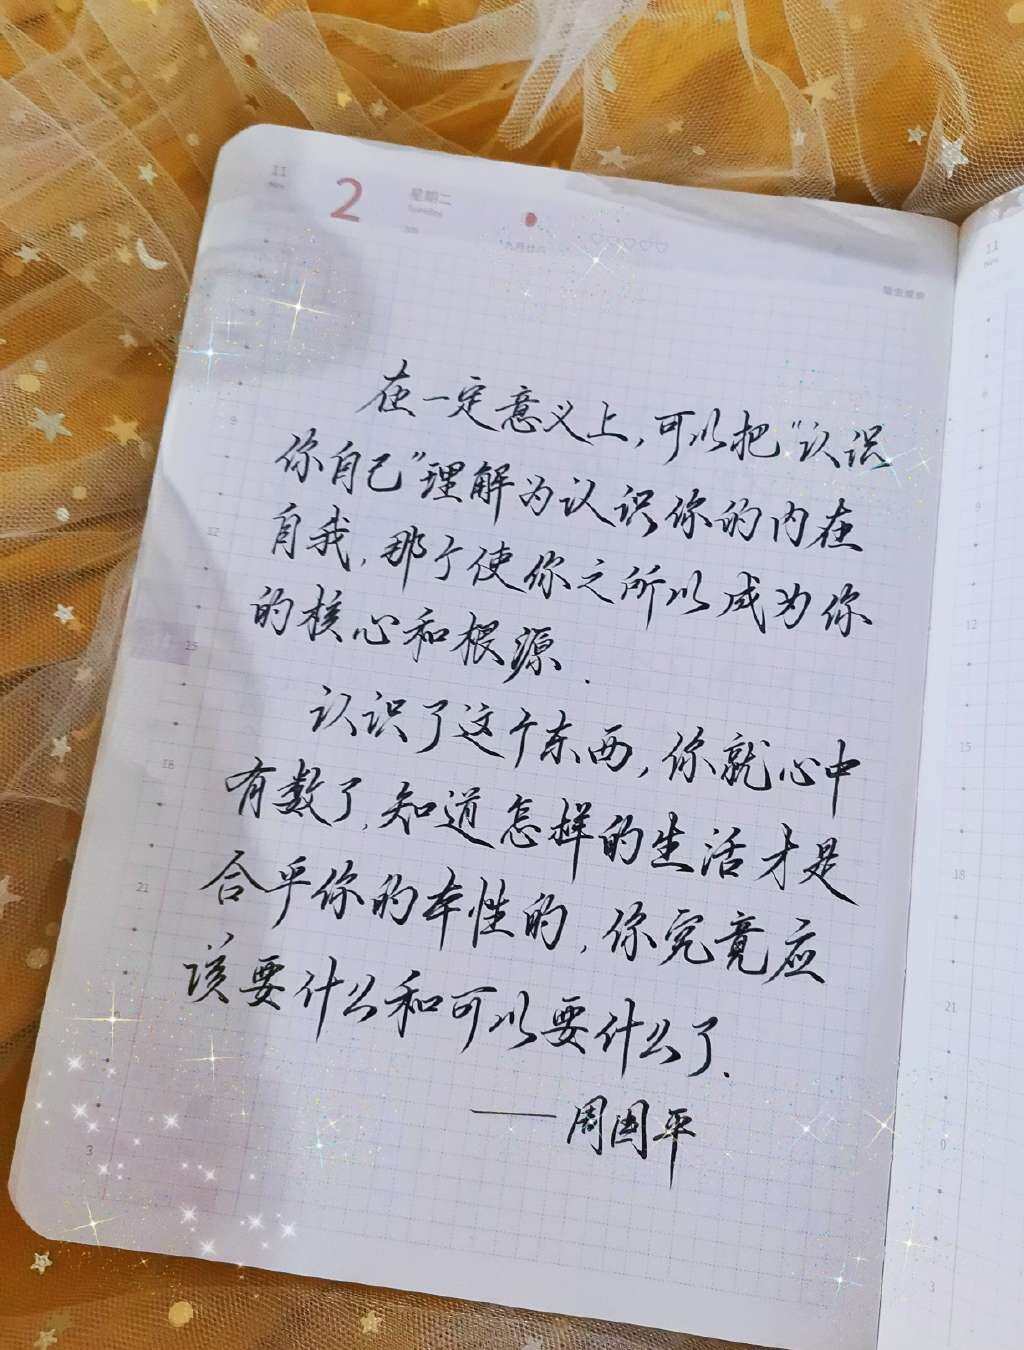 11
Nov
2
星期二
Tuesday
九月廿八
11
Nov
在一定意义上,可以把"认识
你自己"理解为认识你的内在
自我,那个使你之所以成为你
的核心和根源.
认识了这个东西,你就心中
有数了,知道怎样的生活才是
合乎你的本性的,你究竟应
该要什么和可以要什么了.
——周国平
9
12
15
18
21
3
9
12
15
18
21
0
3